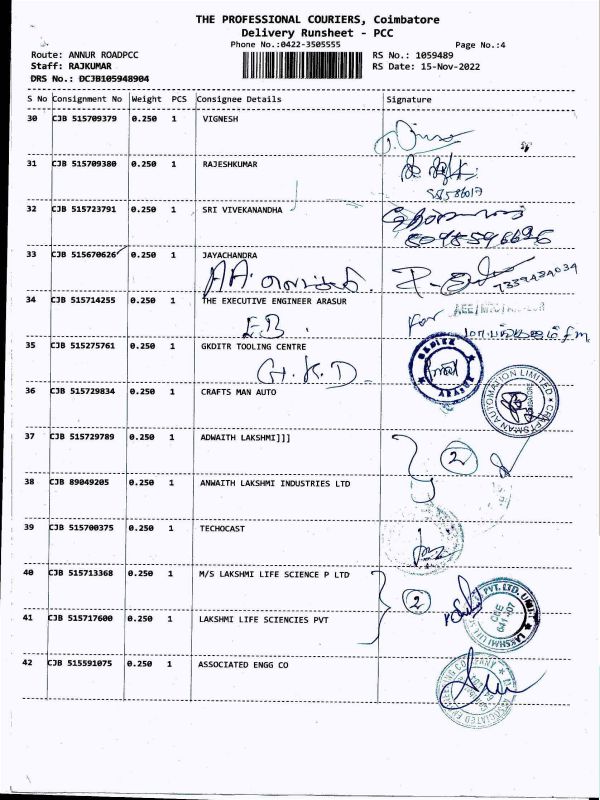 THE PROFESSIONAL COURIERS, Coimbatore
Delivery Runsheet - PCC
Phone No.:0422-3505555
Page No.:4
Route: ANNUR ROADPCC
RS No.: 1059489
Staff: RAJKUMAR
RS Date: 15-Nov-2022
DRS No.: DCJB105948904
S No Consignment No Weight PCS Consignee Details Signature
30 CJB 515709379 0.250 1 VIGNESH
31 CJB 515709380 0.250 1 RAJESHKUMAR
32 CJB 515723791 0.250 1 SRI VIVEKANANDHA
33 CJB 515670626 0.250 1 JAYACHANDRA
34 CJB 515714255 0.250 1 THE EXECUTIVE ENGINEER ARASUR
For
E.B.
35 CJB 515275761 0.250 1 GKDITR TOOLING CENTRE
G.K.D.
ARASUR
36 CJB 515729834 0.250 1 CRAFTS MAN AUTO
CRAFTSMAN AUTOMATION LIMITED
37 CJB 515729789 0.250 1 ADWAITH LAKSHMI]]]
2
38 CJB 89049205 0.250 1 ANWAITH LAKSHMI INDUSTRIES LTD
39 CJB 515700375 0.250 1 TECHOCAST
40 CJB 515713368 0.250 1 M/S LAKSHMI LIFE SCIENCE P LTD
2
41 CJB 515717600 0.250 1 LAKSHMI LIFE SCIENCIES PVT
42 CJB 515591075 0.250 1 ASSOCIATED ENGG CO